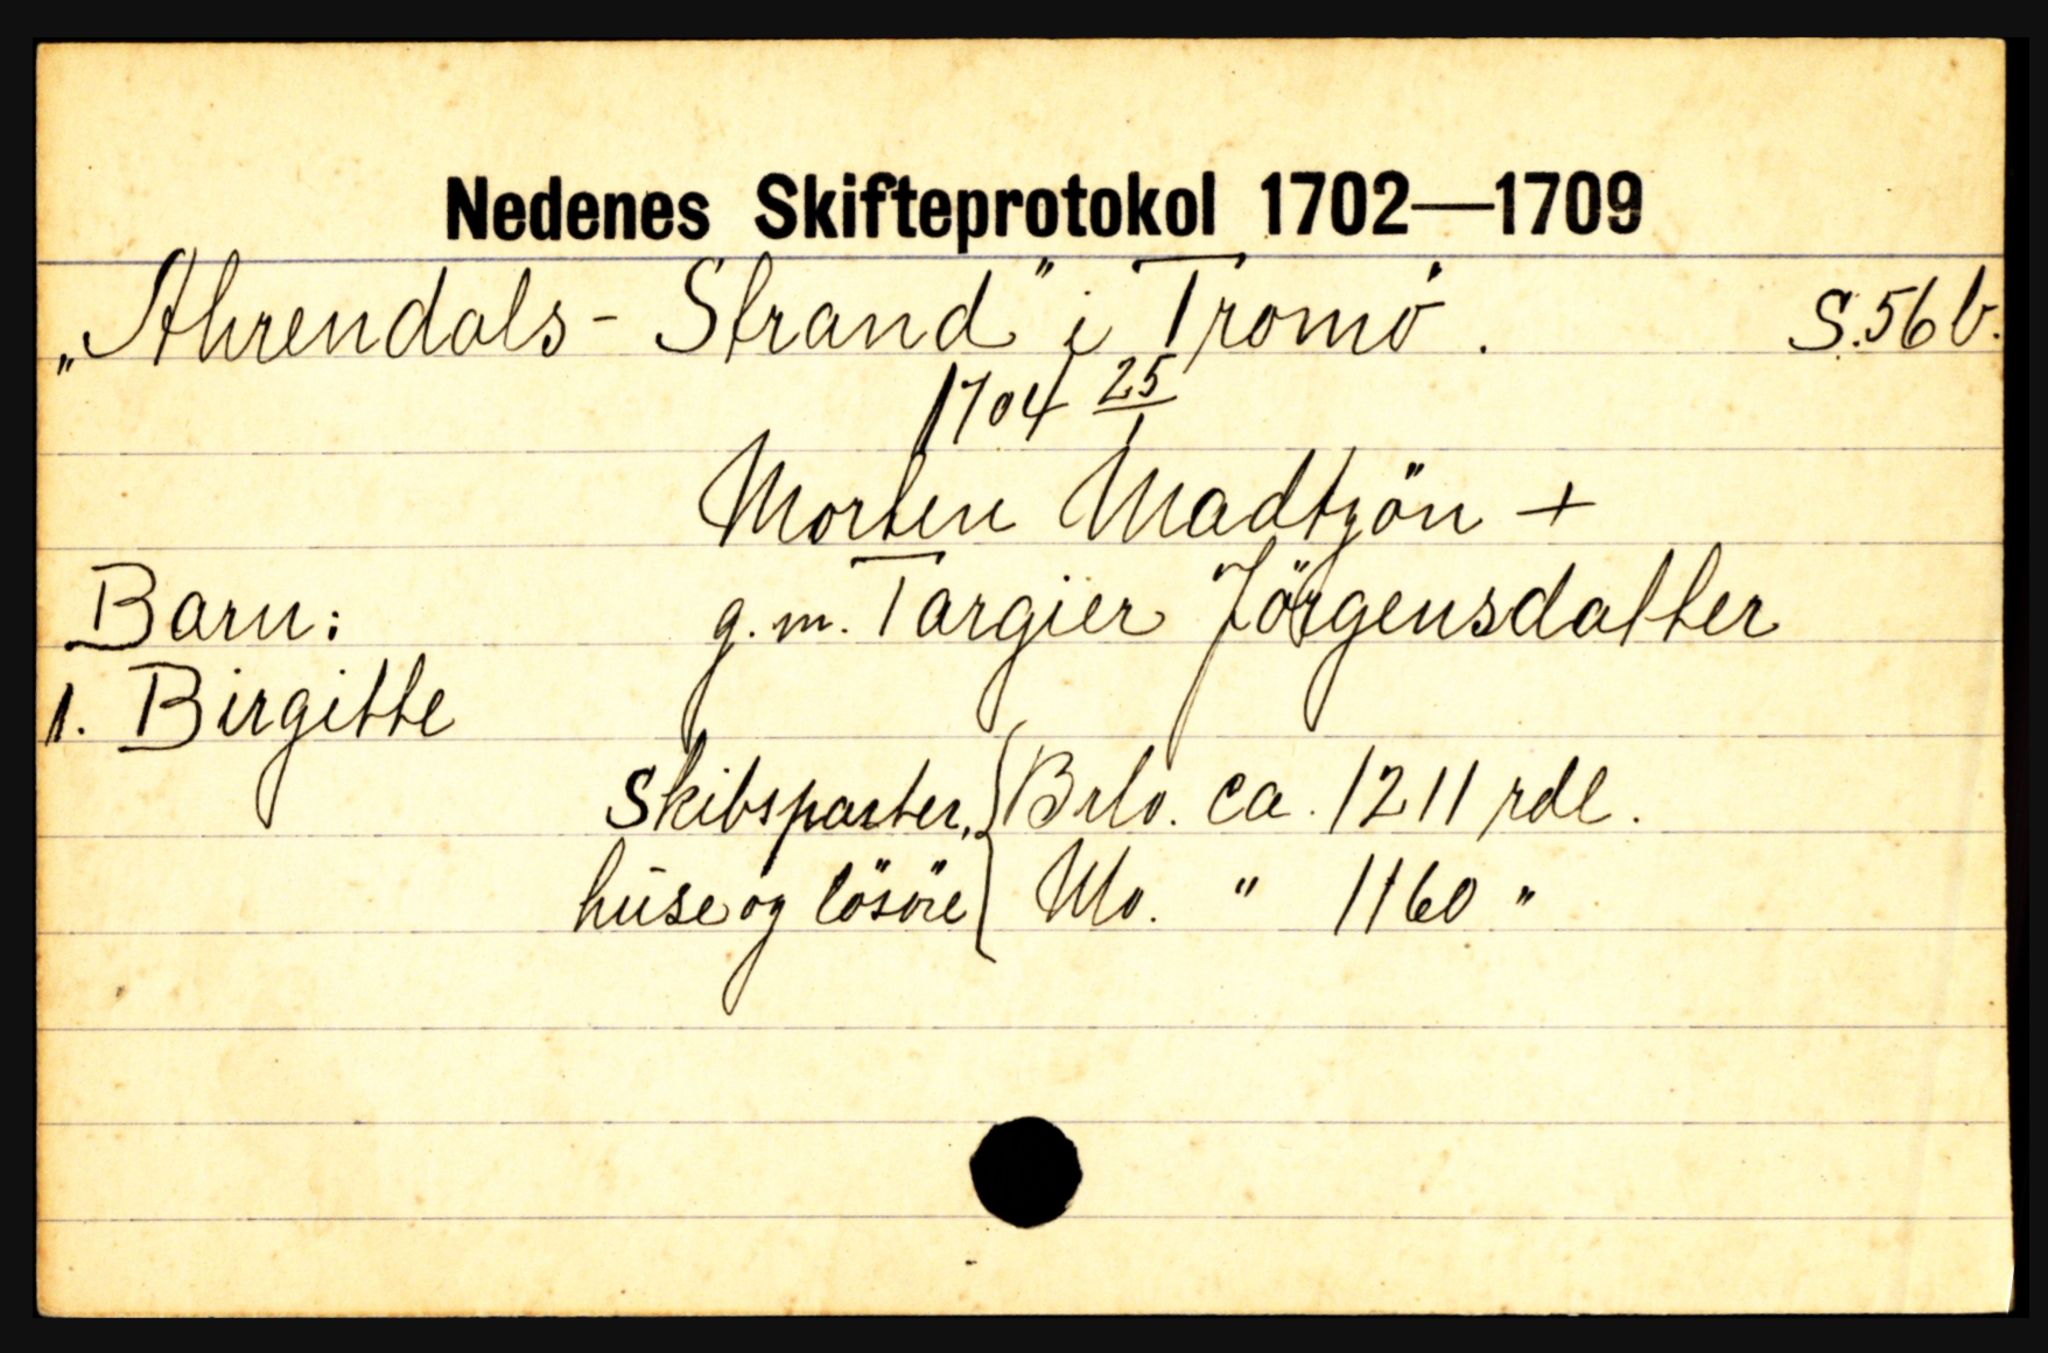 Nedenes Skifteprotokol 1702—1709
„Ahrendals-Strand" i Tromö. S. 56 b.
1704 25/1
Morten Madtzön +
Barn: g. m. Targier Jörgensdatter
1. Birgitte
Skibsparter, { Brto. ca. 1211 rdl.
huse og lösöre { Nto. " 1160 "